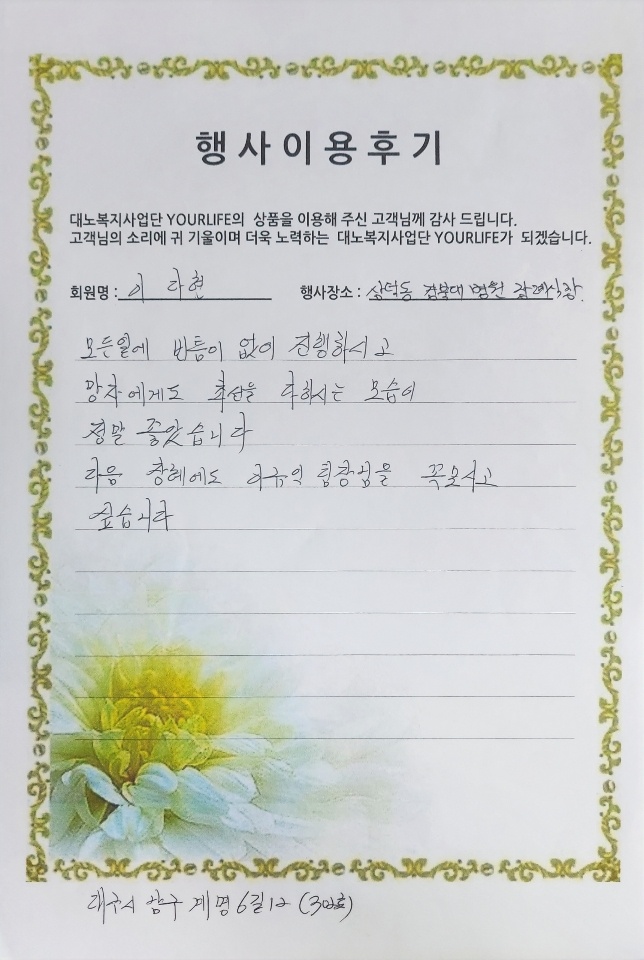 행사이용후기
대노복지사업단 YOURLIFE의 상품을 이용해 주신 고객님께 감사 드립니다.
고객님의 소리에 귀 기울이며 더욱 노력하는 대노복지사업단 YOURLIFE가 되겠습니다.
회원명 : 이 다현 행사장소 : 삼덕동 경북대 병원 장례식장
모든일에 바틈이 없이 진행하시고
망자에게도 최선을 다하시는 모습이
정말 좋았습니다
다음 장례에도 팀장님을 꼭모시고
싶습니다
대구시 남구 계명6길12